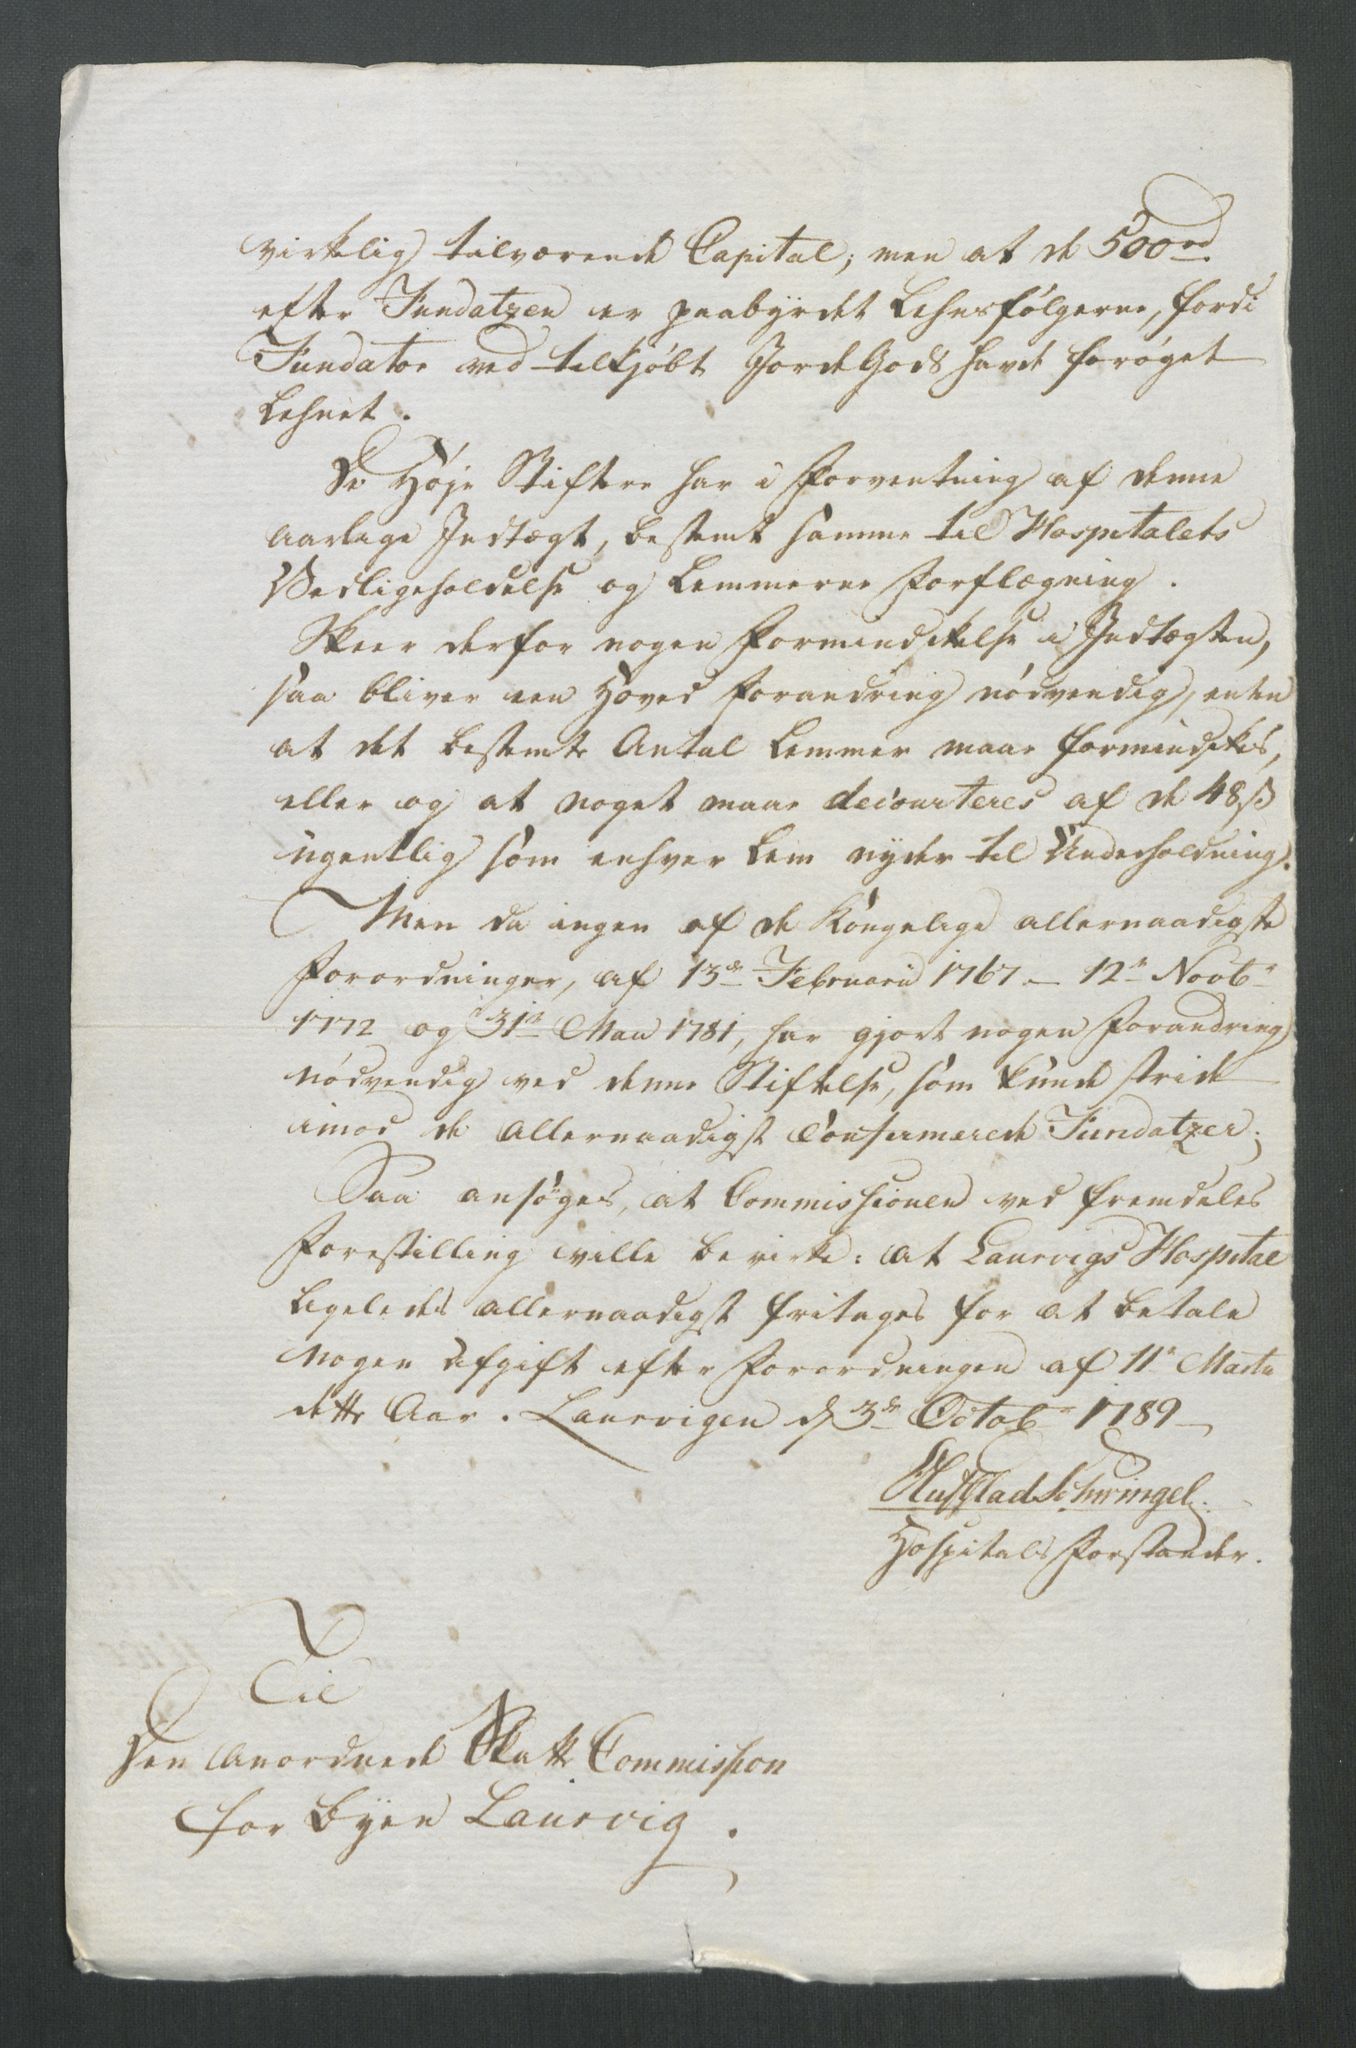 virkelig tilværende Capital; men at de 500 rd
efter Fundatzen er paabyrdet Lehnsfølgerne, fordi
Fundator ved tilkjöbt JordeGods havde forøget
Lehnet.
De Høje Stiftere har i Forventning af denne
aarlige Indtægt, bestemt samme til Hospitalets
Vedligeholdelse og Lemmernes Forflægning.
Skeer derfor nogen Formindskelse i Indtægten,
saa bliver een Hoved Forandring nödvendig, enten
at det bestemte Antal Lemmer maae formindskes,
eller og at noget maae decourteres af de 48 ß
ugentlig som enhver Lem nyder til Underholdning.
Men da ingen af de Kongelige allernaadigste
Forordninger, af 13de Februarii 1767 - 12te Novbr
1772 og 31te Maii 1781, har gjort nogen Forandring
nödvendig ved denne Stiftelse, som kunde stride
imod de allernaadigst Confirmerede Fundatzer;
Saa ansøges, at Commissionen ved fremdeles
Forestilling ville bevirke: at Laurvigs Hospital
ligeledes allernaadigst fritages for at betale
nogen Afgift efter Forordningen af 11te Martii
dette Aar. Laurvigen d 3de Octobr 1789
Schwingel.
Hospitals Forstander.
Til
Den Anordnede Skatte Commission
for Byen Laurvig.